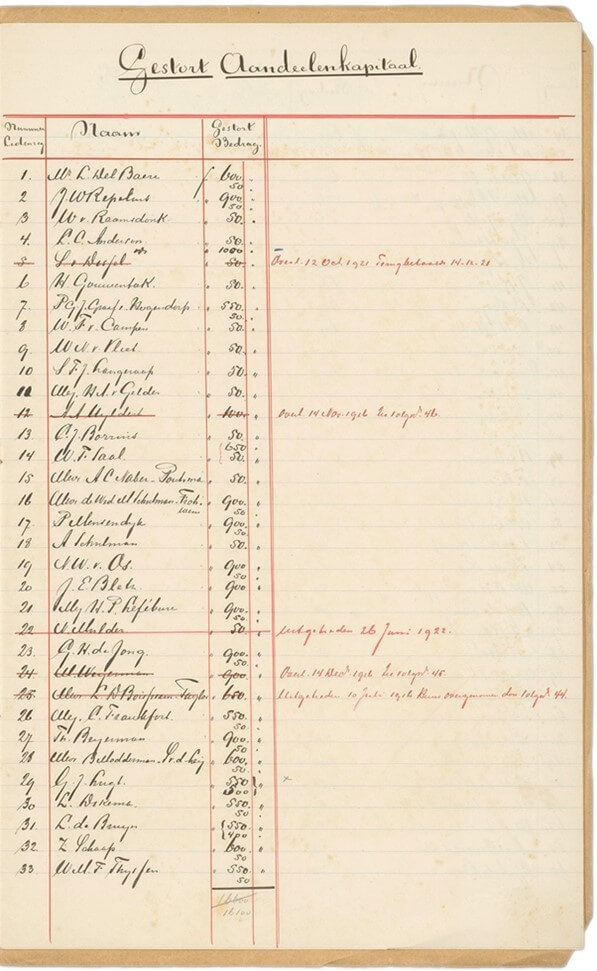 Gestort Aandeelenkapitaal.
Nummer Naam Gestort
Bedrag.
1. Mr. L. Del Baere 600.
50
2 J. W. Repelius 900
50
3 W. v. Raamsdonk. 50.
4. L. C. Anderson 50.
1000
5 50. Overl. 12 Oct. 1921 Terugbetaald 14.12.21
6 H. Gouwentak. 50.
7. P. C. J. Graaf v. Hogendorp. 550.
50
8 W. F. v. Campen 50.
9. W. N. v. Vliet 50.
10 S. F. J. Langeraap 50.
11 Mej. H. A. v. Gelder 50.
12 100 Overl. 14 Nov. 1916 Zie volgnr. 46.
13 C. J. Borrius 50.
650
14 W. F. Saal 50.
15 Mevr. A C Naber - 50
16 Mevr. de Wed. M. Schulman - 900.
50
17. P. Mensendyk 900.
50
18 A Schulman 50.
19 N. W. v. Os. 900
50
20 J. E. Blek. 900.
50
21 Mej. H. P. Lefébure 900.
50
22 N. Mulder 50 Uitgetreden 26 Juni 1922.
23. C. H. de Jong. 900.
50
24 M. Wegerman 900. Overl. 14 Dec. 1916 Zie volgnr. 45.
25 Mevr. L. D. 650. Uitgetreden 10 Juli 1916 volgnr. 44.
26 Mej. C. Frankfort. 550.
50
27 Th. Beyerman 900.
50
28 Mevr. 600.
50
29 G. J. Lugt. 550 x
500
30 L. Dekema. 550.
50
31. L. de Bruyn 550.
400
32. Z Schaap 600
50
33. W. M. F. Thyssen 550.
50
16600
16100